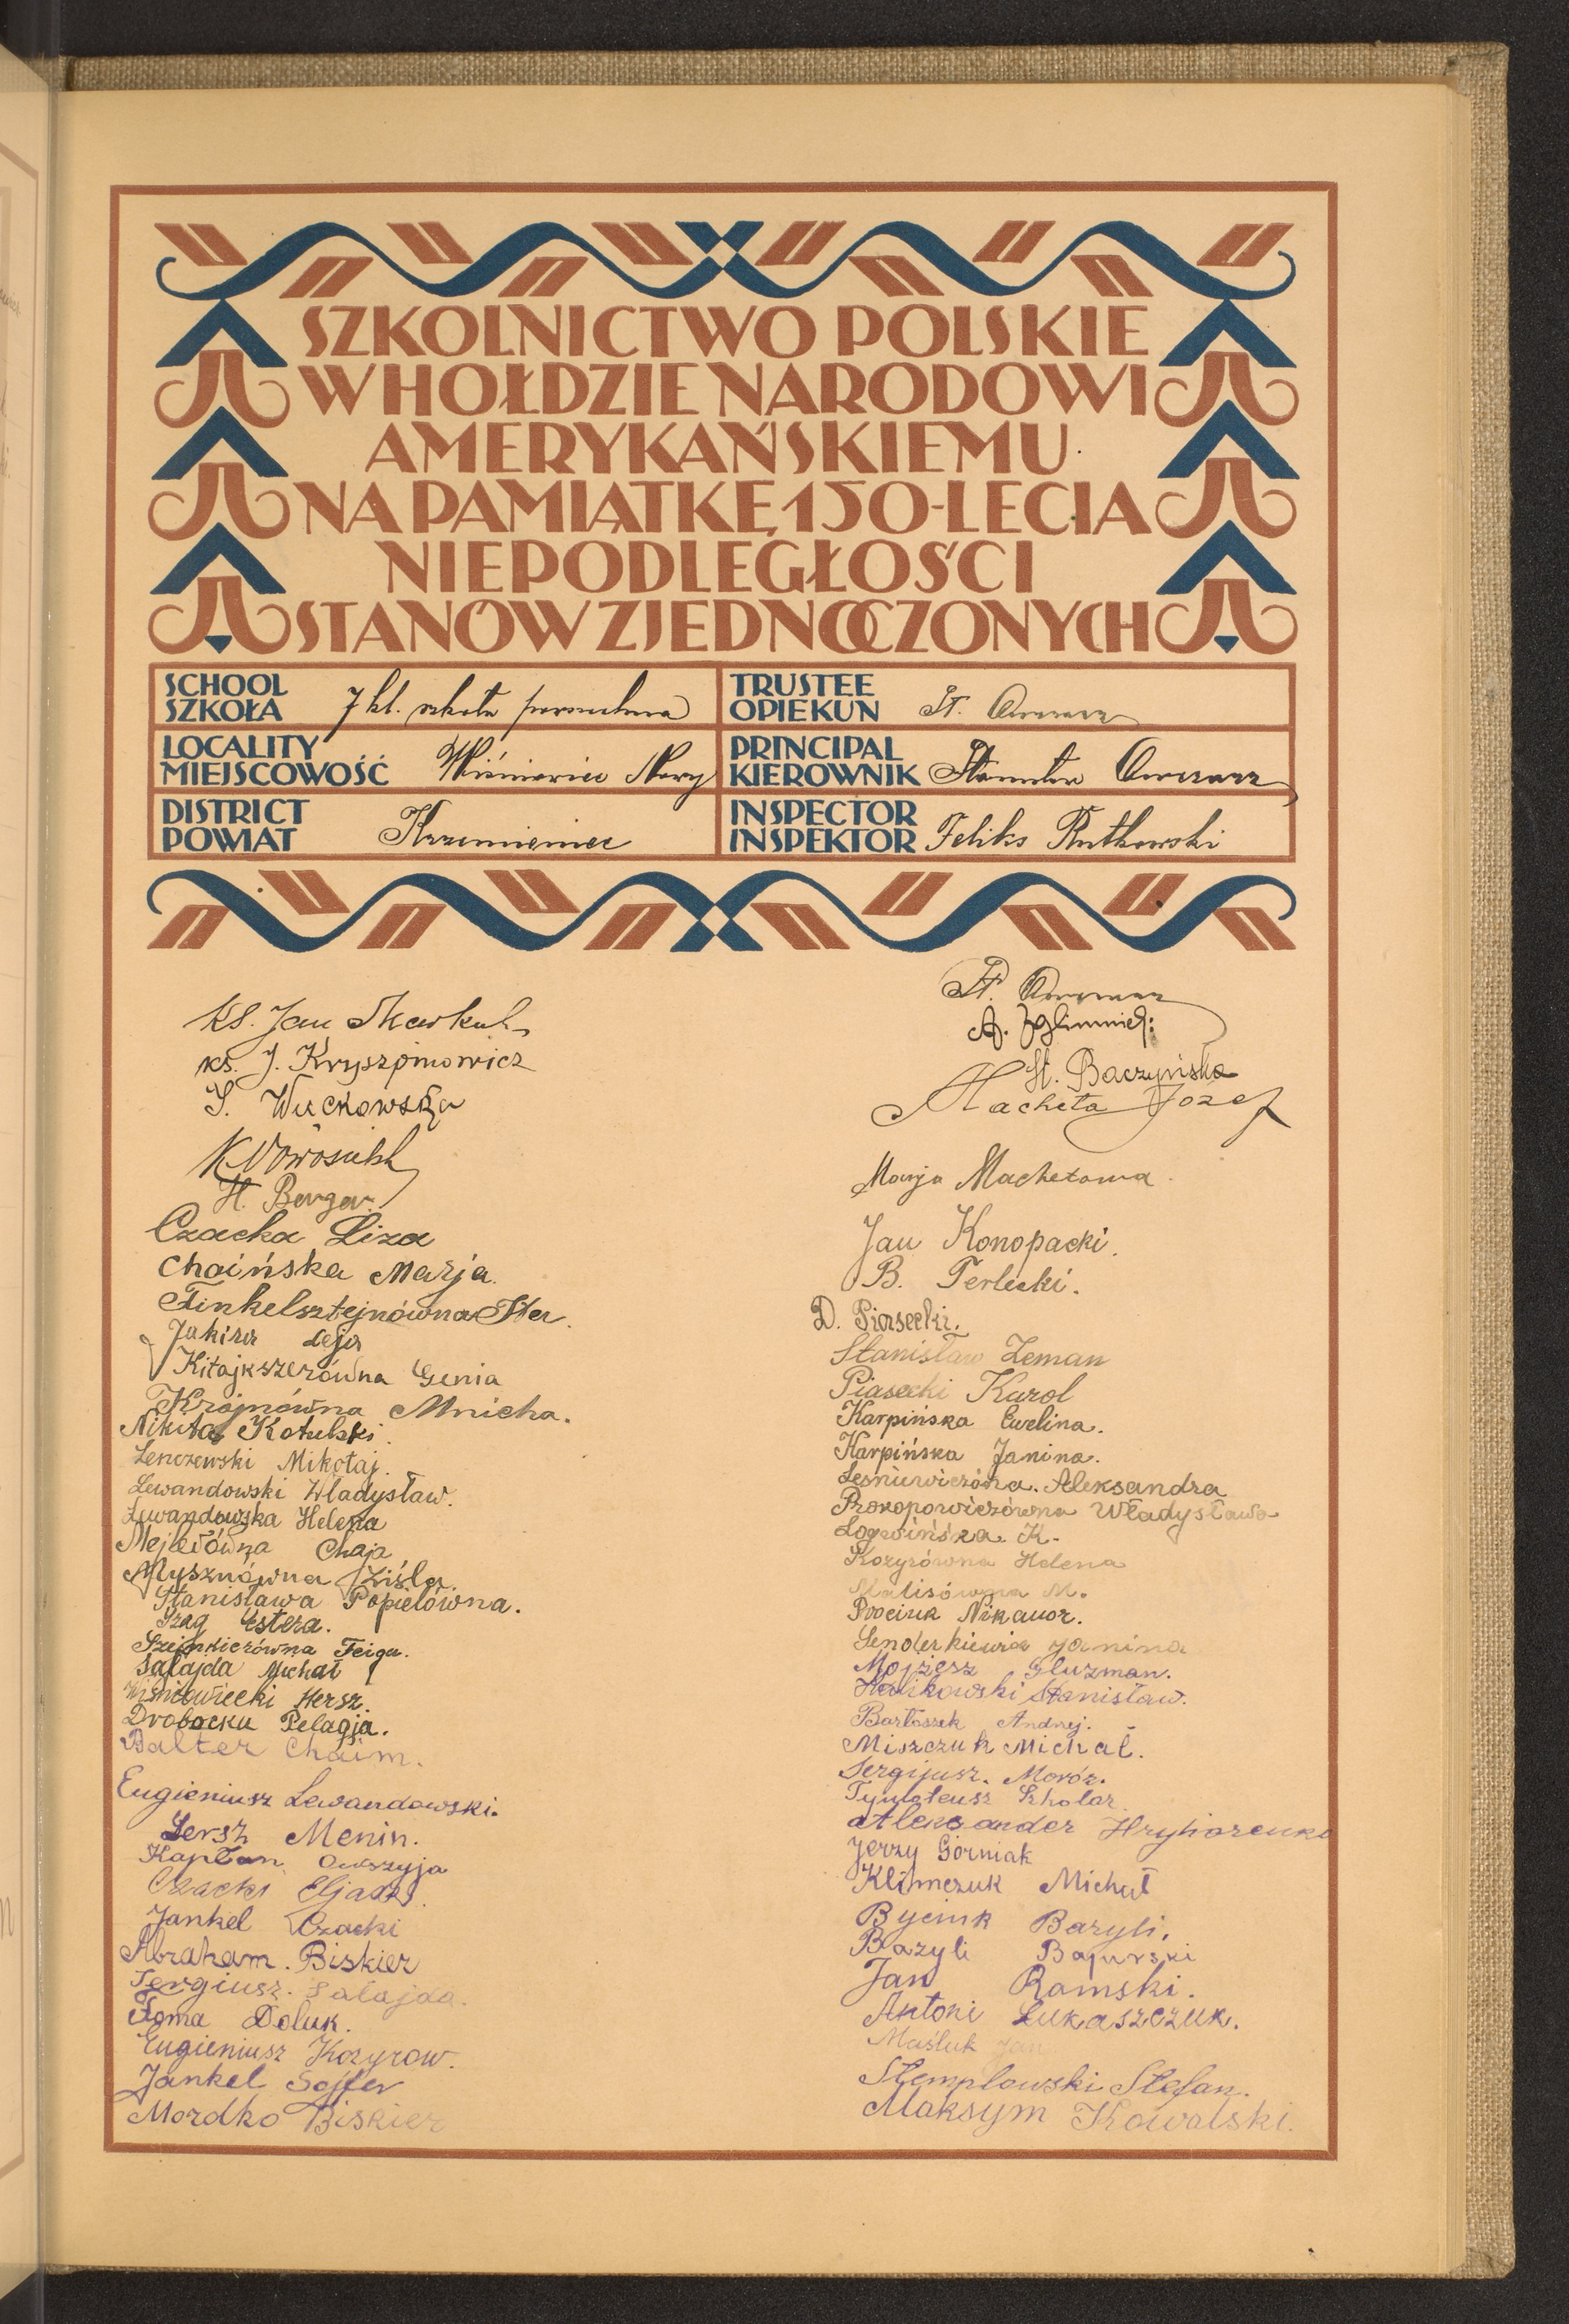 SZKOLNICTWO POLSKIE
W HOŁDZIE NARODOWI
AMERYKAŃSKIEMU
NA PAMIĄTKĘ 150-LECIA
NIEPODLEGŁOŚCI
STANÓW ZJEDNOCZONYCH
SCHOOL
SZKOŁA 7 kl. szkoła powszechna
TRUSTEE
OPIEKUN St. Owczarz
LOCALITY
MIEJSCOWOŚĆ Wiśniowiec Nowy
PRINCIPAL
KIEROWNIK Stanisław Owczarz
DISTRICT
POWIAT Krzemieniec
INSPECTOR
INSPEKTOR Feliks Rutkowski
Ks. Jan
ks. J.
S. Wuckowska
H. Berger.
Czacka Liza
Chaińska Marja.
Finkelsztejnówna Ster.
Jakira Leja
Kitajkszerówna Genia
Krojnówna Mnicha.
Nikita Kotulski.
Lenczewski Mikołaj.
Lewandowski Władysław.
Lewandowska Helena
Mejlerówna Chaja
Mysznówna Ziśla.
Stanisława Popielówna.
Szag Estera.
Szejnkierówna Feiga.
Sałajda Michał
Wiśniowiecki Hersz.
Drobocku Pelagja.
Balter Chaim.
Eugieniusz Lewandowski.
Lersz Menin.
Kapłan Owszyja
Czacki Eljasz.
Jankel Czacki
Abraham. Biskier
Sergiusz. Sałajda.
Foma Doluk.
Eugieniusz Kozyrow.
Jankel Sojfer
Mordko Biskier
St. Owczarz
A.
St. Baczyńska
Macheta Józef
Marja Machetowa.
Jan Konopacki.
B. Terlecki.
D. Piasecki.
Stanisław Zeman
Piasecki Karol
Karpińska Ewelina.
Karpińska Janina.
Leśniewiczówna. Aleksandra
Prokopowiczówna Władysława
Łogwińska K.
Kozyrówna Helena
M.
Pociuk Nikanor.
Senderkiewicz Janina
Mojżesz Gluzman.
Stanisław.
Bartoszek Andrzej.
Miszczuk Michał.
Sergijusz. Moróz.
Tymoteusz Szkolar.
Aleksander Hryhorenko
Jerzy Górniak
Klimczuk Michał
Byciuk Bazyli.
Bazyli Bajurski
Jan Ramski.
Antoni Łukaszczuk.
Maśluk Jan
Stemplowski Stefan.
Maksym Kowalski.